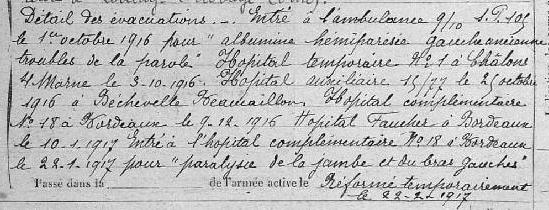 Détail des évacuations. – Entré à l'ambulance 9/10 S.P. 105
le 1er octobre 1916 pour "albumine hémiparésie gauche ancienne
troubles de la parole" Hopital temporaire No 1 à Châlons
s/ Marne le 3-10-1916. Hopital auxiliaire 15/77 le 25 octobre
1916 à Bécheville Les Hopital complémentaire
No 18 à Bordeaux le 9-12-1916 Hopital Faucher à Bordeaux
le 10-1-1917 Entré à l'hopital complémentaire No 18 à Bordeaux
le 22-1-1917 pour "paralysie de la jambe et du bras gauches"
Passé dans la de l'armée active le Réformé temporairement
le 22-2-1917